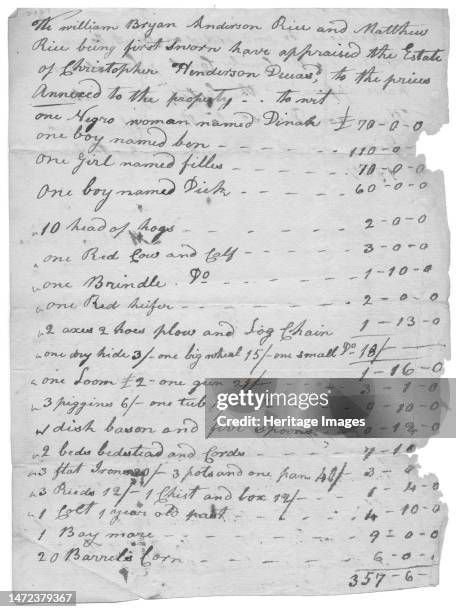 We william Bryan Anderson Rice and Matthew
Rice being first Sworn have appraised the Estate
of Christopher Henderson Deceasd, to the prices
Annexed to the property - . to wit
one Negro woman named Dinah £ 70-0-0
one boy named ben - - - 110-0-0
one Girl named filles - - 70-0-0
One boy named Dick - - - 60-0-0
" 10 head of hogs - - - 2-0-0
" one Red Cow and Calf - 3-0-0
" one Brindle . Do - - 1-10-0
" one Red heifer - - - 2-0-0
" 2 axes 2 hoes plow and Log Chain 1-13-0
" one dry hide 3/- one big wheal 15/- one small Do 18/-
1-16-0
" one Loom £2 - one gun 21/- 3-1-0
" 3 piggins 6/- one tub -10-0
" dish bason and Spoons
" 2 beds bedstead and Cords - 7-10
" 3 flat Irons 20/- 3 pots and one pan 40/- 3-
" 3 Reeds 12/- 1 Chist and box 12/- 1-4-0
" 1 Colt 1 year old past - - 4-10-0
1 Bay mare - - - 9-0-0
20 Barrels Corn - - - 6-0-
357-6-
gettyimages
Credit: Heritage Images
1472379367